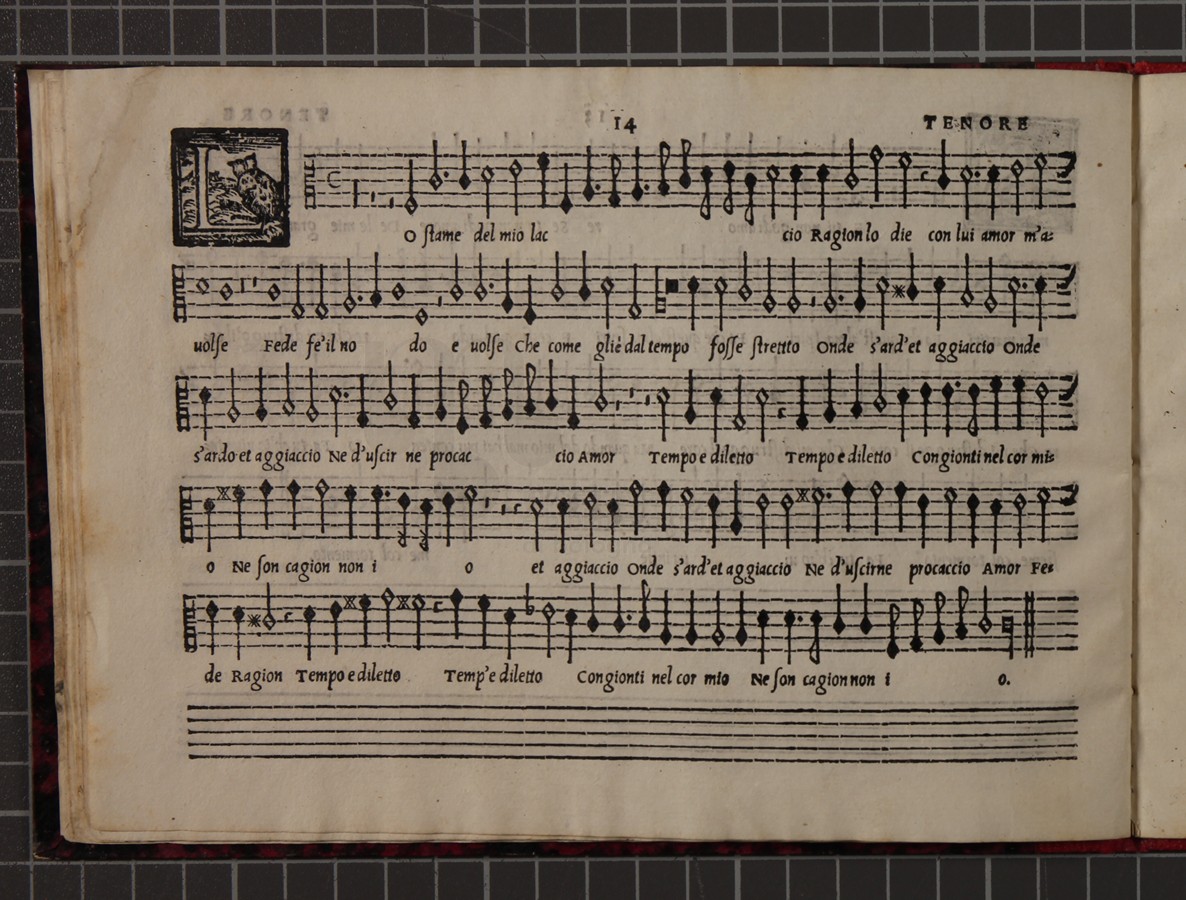 14 TENORE
LO ſtame del mio lac cio Ragion lo die con lui amor m'a:
uolſe Fede fe'il no do e uolſe Che come gliè dal tempo foſſe ſtretto Onde s'ard'et aggiaccio Onde
s'ardo et aggiaccio Ne d'uſcir ne procac cio Amor Tempo e diletto Tempo e diletto Congionti nel cor mi:
o Ne ſon cagion non i o et aggiaccio Onde s'ard'et aggiaccio Ne d'uſcirne procaccio Amor Fe:
de Ragion Tempo e diletto Temp'e diletto Congionti nel cor mio Ne ſon cagion non i o.